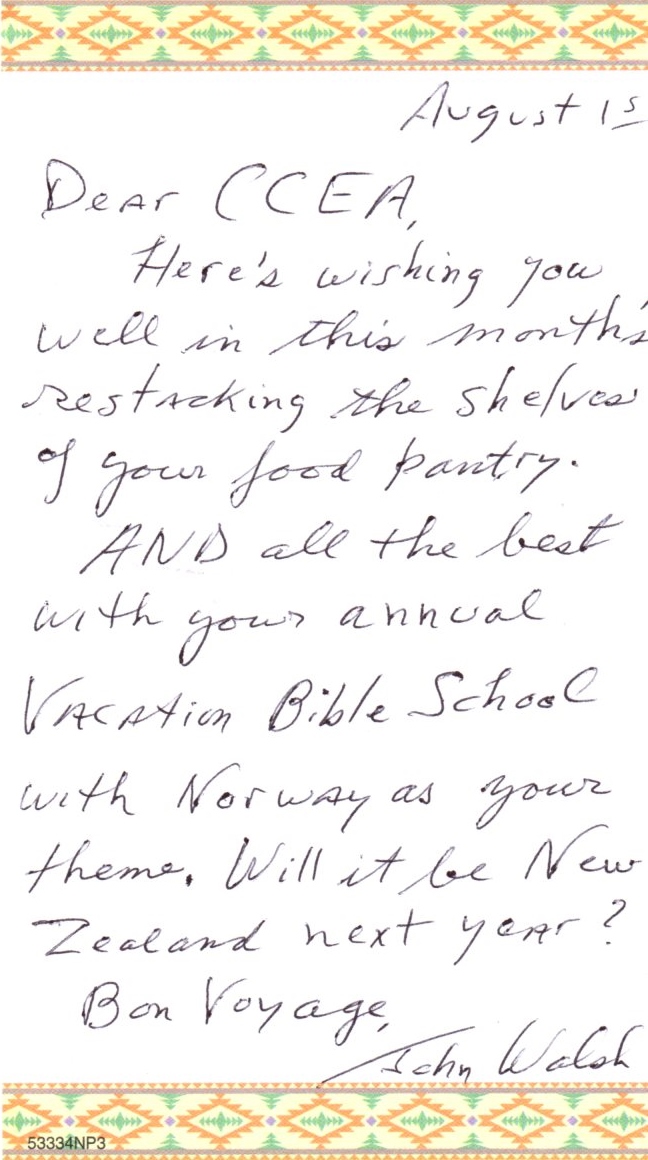 August 1s
Dear CCEA,
Here's wishing you
well in this month's
restacking the shelves
of your food pantry.
AND all the best
with your annual
Vacation Bible School
with Norway as your
theme. Will it be New
Zealand next year?
Bon Voyage,
John Walsh
53334NP3